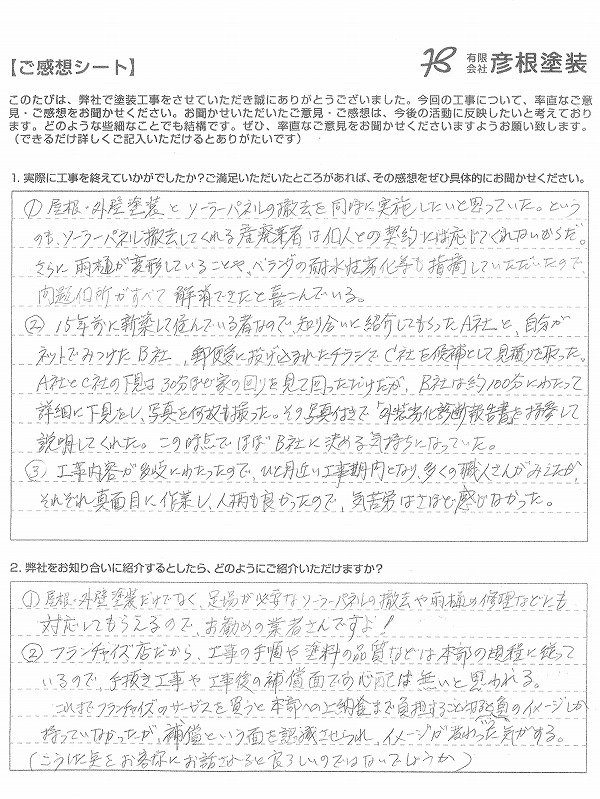 【ご感想シート】
有限会社 彦根塗装
このたびは、弊社で塗装工事をさせていただき誠にありがとうございました。今回の工事について、率直なご意
見・ご感想をお聞かせください。お聞かせいただいたご意見・ご感想は、今後の活動に反映したいと考えており
ます。どのような些細なことでも結構です。ぜひ、率直なご意見をお聞かせくださいますようお願い致します。
（できるだけ詳しくご記入いただけるとありがたいです）
1. 実際に工事を終えていかがでしたか？ご満足いただいたところがあれば、その感想をぜひ具体的にお聞かせください。
① 屋根・外壁塗装とソーラーパネルの撤去を同時に実施したいと思っていた。という
のも、ソーラーパネル撤去してくれる産廃業者は個人との契約には応じてくれないからだ。
さらに雨樋が変形していることや、ベランダの耐水性劣化等も指摘していただいたので、
問題個所がすべて解消できたと喜こんでいる。
② 15年前に新築して住んでいる者なので、知り合いに紹介してもらったA社と、自分が
ネットでみつけたB社、郵便受に投げ込まれたチラシでC社を候補として見積りを取った。
A社とC社の下見は30分ほど家の回りを見て回っただけだが、B社は約100分にわたって
詳細に下見をし、写真を何枚も撮った。その写真付きで「外装劣化診断報告書」を持参して
説明してくれた。この時点でほぼB社に決める気持ちになっていた。
③ 工事内容が多岐にわたったので、ひと月近い工事期間となり、多くの職人さんがみえたが、
それぞれ真面目に作業し、人柄も良かったので、気苦労はさほど感じなかった。
2. 弊社をお知り合いに紹介するとしたら、どのようにご紹介いただけますか？
① 屋根・外壁塗装だけでなく、足場が必要なソーラーパネルの撤去や雨樋の修理などにも
対応してもらえるので、お勧めの業者さんですよ！
② フランチャイズ店だから、工事の手順や塗料の品質などは本部の規程に従って
いるので、手抜き工事や工事後の補償面で心配は無いと思われる。
これまでフランチャイズのサービスを買うと本部への上納金まで負担することになると負のイメージしか
持っていなかったが、補償という面を認識させられ、イメージが変わった気がする。
（こうした点をお客様にお話されると良ろしいのではないでしょうか）